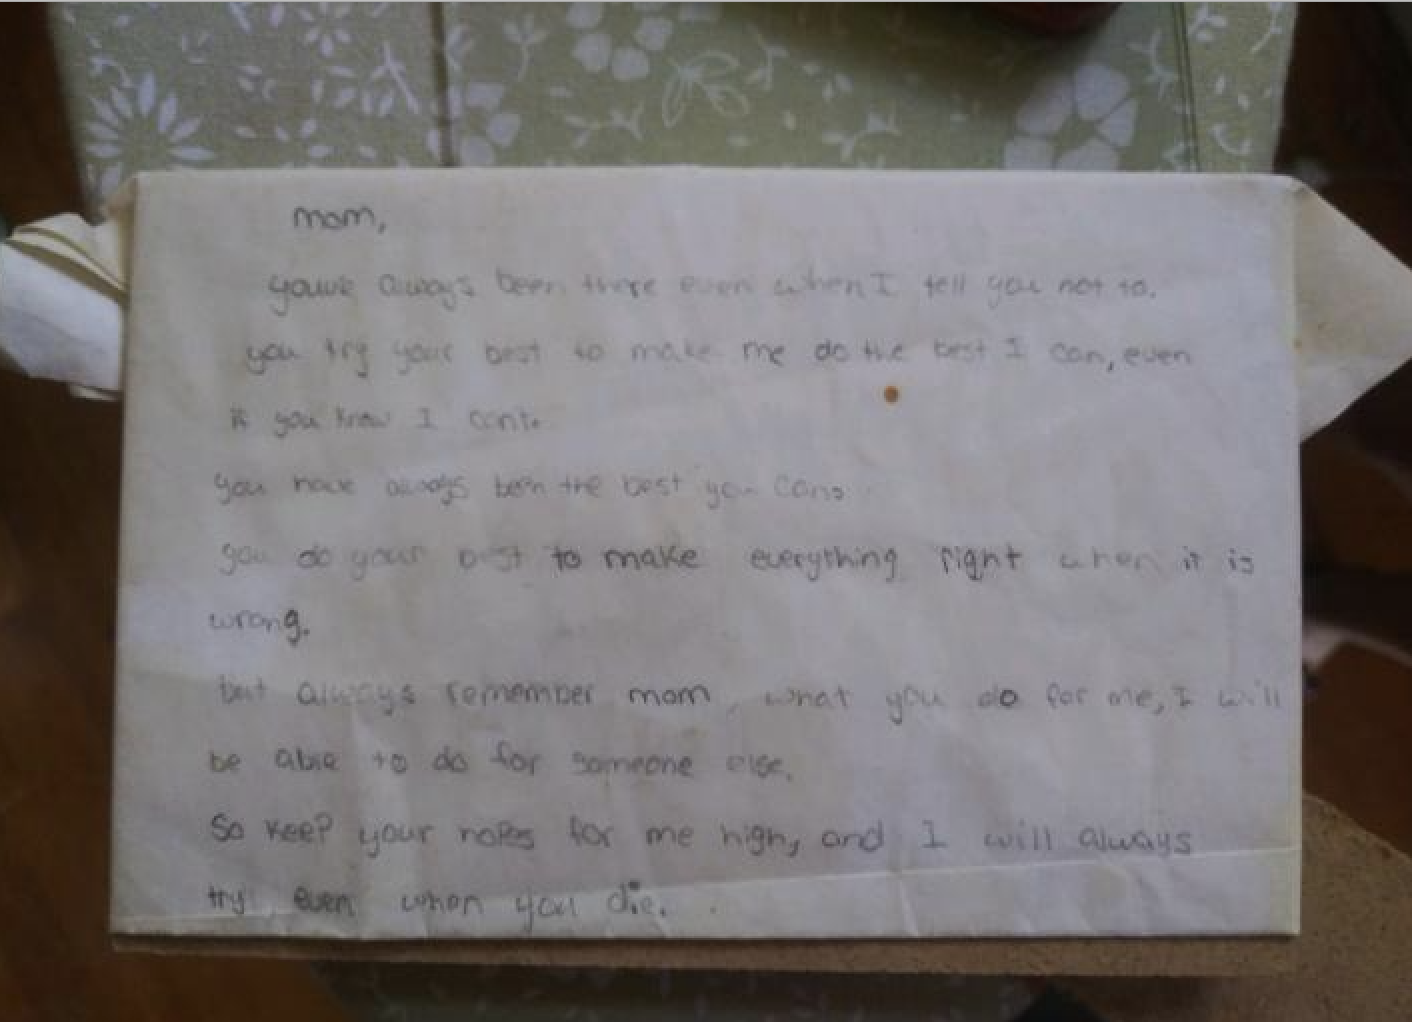 mom,
youve always been there even when I tell you not to.
you try your best to make me do the best I can, even
if you know I cant.
you have always been the best you can.
you do your best to make everything right when it is
wrong.
but always remember mom, what you do for me, I will
be able to do for someone else.
So keep your hopes for me high, and I will always
try, even when you die.